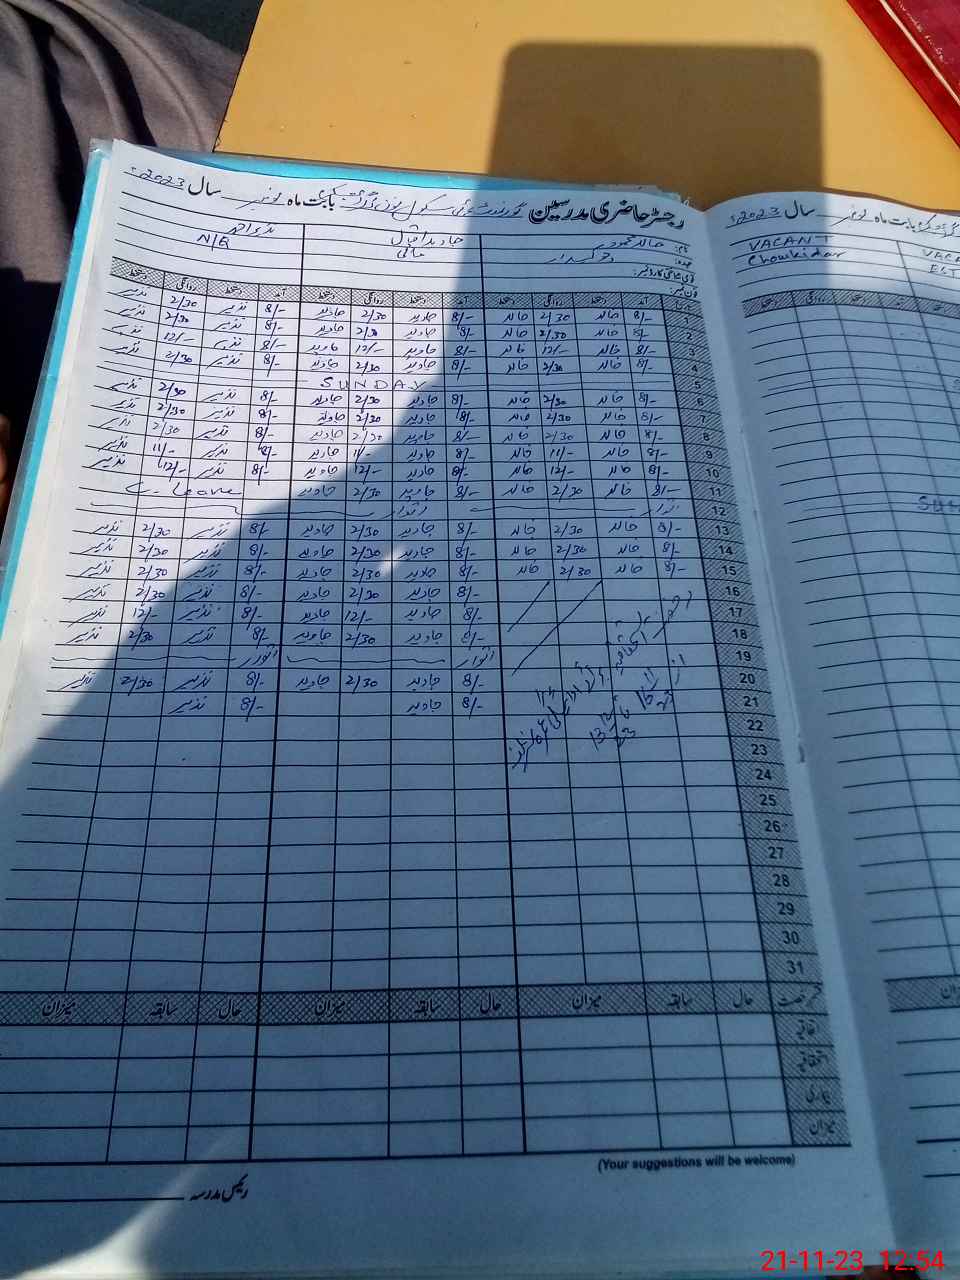 رجسٹر حاضری مدرسین گورنمنٹ ہائی سکول بابت ماہ نومبر سال 2023ء
نام: خالد محمود جاوید اقبال نذیر احمد
عہدہ: چوکیدار مالی N/Q
تاریخ آمد دستخط روانگی دستخط آمد دستخط روانگی دستخط آمد دستخط روانگی دستخط
1 8/- خالد 2/30 خالد 8/- جاوید 2/30 جاوید 8/- نذیر 2/30 نذیر
2 8/- خالد 2/30 خالد 8/- جاوید 2/30 جاوید 8/- نذیر 2/30 نذیر
3 8/- خالد 12/- خالد 8/- جاوید 12/- جاوید 8/- نذیر 12/- نذیر
4 8/- خالد 2/30 خالد 8/- جاوید 2/30 جاوید 8/- نذیر 2/30 نذیر
5 SUNDAY
6 8/- خالد 2/30 خالد 8/- جاوید 2/30 جاوید 8/- نذیر 2/30 نذیر
7 8/- خالد 2/30 خالد 8/- جاوید 2/30 جاوید 8/- نذیر 2/30 نذیر
8 8/- خالد 2/30 خالد 8/- جاوید 2/30 جاوید 8/- نذیر 2/30 نذیر
9 8/- خالد 11/- خالد 8/- جاوید 11/- جاوید 8/- نذیر 11/- نذیر
10 8/- خالد 12/- خالد 8/- جاوید 12/- جاوید 8/- نذیر 12/- نذیر
11 8/- خالد 2/30 خالد 8/- جاوید 2/30 جاوید C. Leave
12 اتوار اتوار
13 8/- خالد 2/30 خالد 8/- جاوید 2/30 جاوید 8/- نذیر 2/30 نذیر
14 8/- خالد 2/30 خالد 8/- جاوید 2/30 جاوید 8/- نذیر 2/30 نذیر
15 8/- خالد 2/30 خالد 8/- جاوید 2/30 جاوید 8/- نذیر 2/30 نذیر
16 8/- جاوید 2/30 جاوید 8/- نذیر 2/30 نذیر
17 8/- جاوید 12/- جاوید 8/- نذیر 12/- نذیر
18 8/- جاوید 2/30 جاوید 8/- نذیر 2/30 نذیر
19 اتوار اتوار
20 8/- جاوید 2/30 جاوید 8/- نذیر 2/30 نذیر
21 8/- جاوید 8/- نذیر
22
23
24
25
26
27
28
29
30
31
رخصت حال سابقہ میزان حال سابقہ میزان حال سابقہ میزان
اتفاقیہ
استحقاقیہ
بیماری
میزان
(Your suggestions will be welcome)
رئیس مدرسہ
بابت ماہ نومبر سال 2023ء
VACANT
Chowkidar
21-11-23 12:54